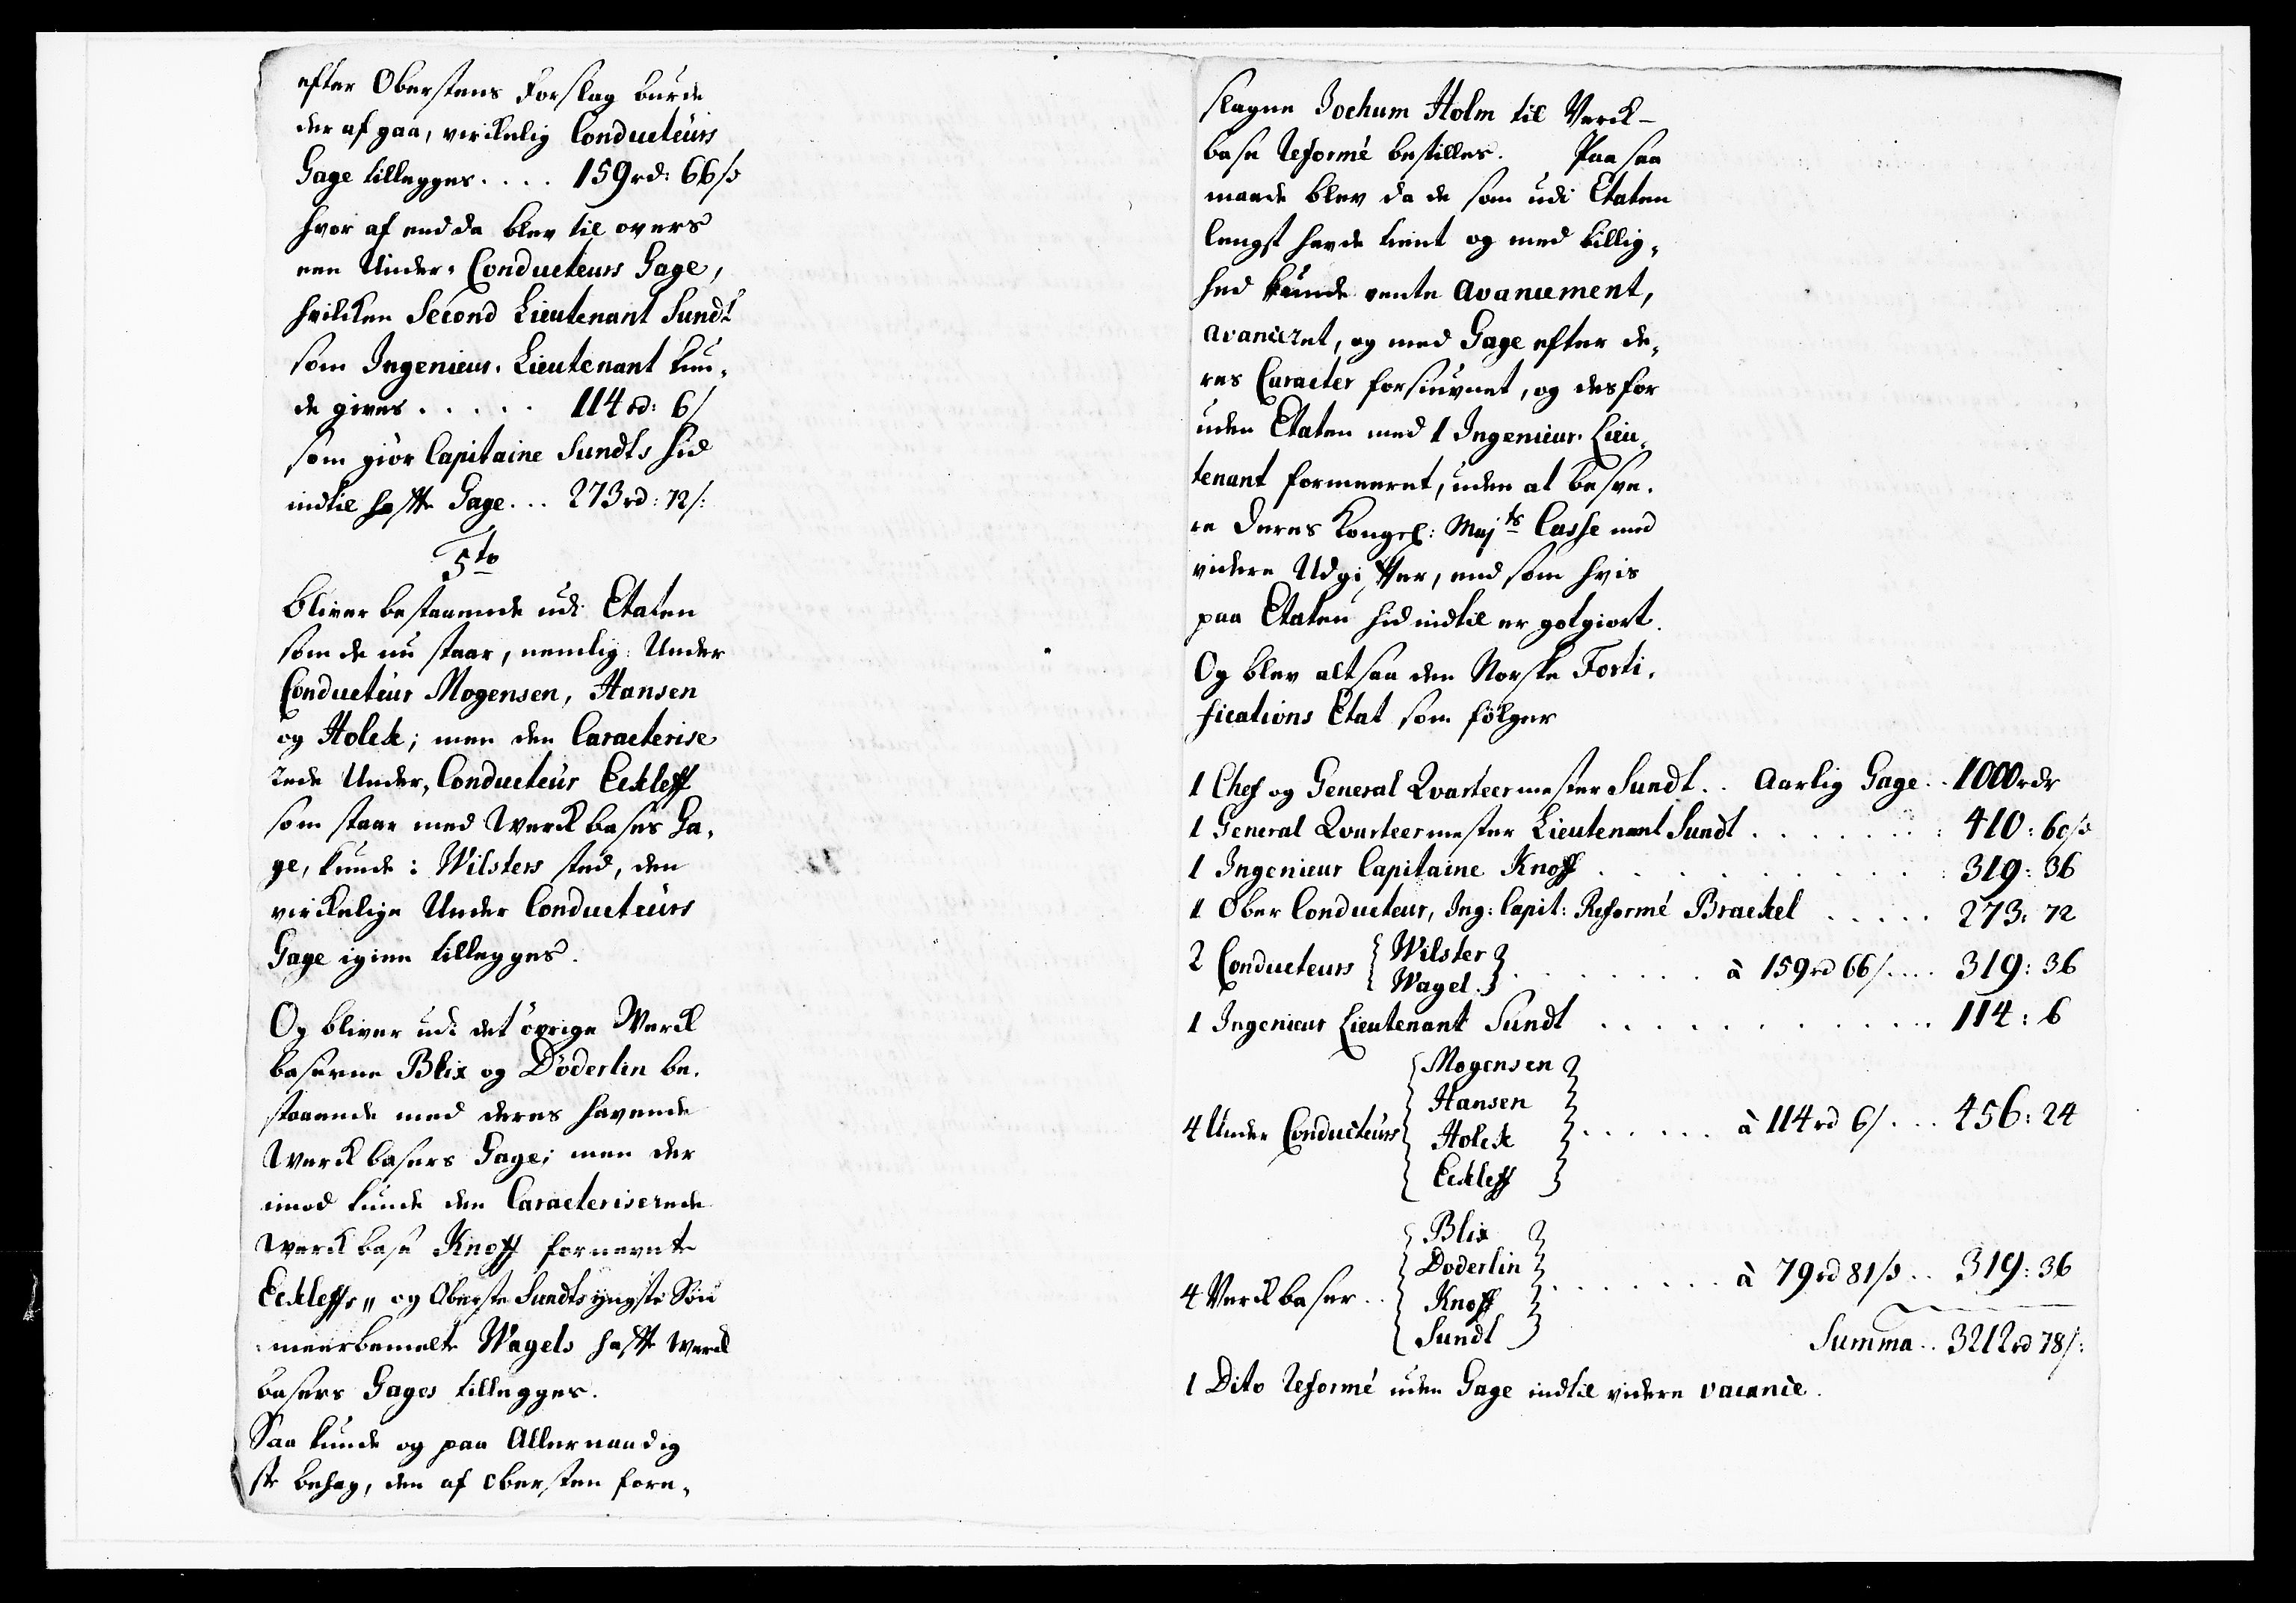 efter Oberstens Forslag burde
der af gaa, virkelig Conducteurs
Gage tillegges.... 159rd: 66s
hvor af end da blev til overs
een Under-Conducteurs Gage,
hvilcken Second Lieutenant Sundt
som Ingenieur-Lieutenant kun-
de gives..... 114rd: 6s
som giör Capitaine Sundts hid
indtil hafte Gage... 273rd: 72s:
5to
bliver bestaaende udi Etaten
som de nu staar, nemlig: Under
Conducteur Mogensen, Hansen
og Holck; men den Caracterise
rede Under-Conducteur Eckleff
som staar med Werckbases Ga-
ge, kunde i Wilsters sted, den
virckelige Under Conducteurs
Gage igien tillegges.
Og bliver udi det övrige Werck
baserne Blix og Döderlin be-
staaende med deres havende
Werckbasers Gage; men der
imod kunde den Caracteriserede
Werckbase Knoff fornevnte
Eckleffs,, og Oberste Sundts yngste Sön
meerbemelte Wagels hafte Werck
basers Gages tillegges.
Saa kunde og paa Allernaadig
ste behag, den af Obersten fore-
slagne Jochum Holm til Verck-
base Reformé bestilles. Paa saa
maade blev da de som udi Etaten
lengst hafde tient og med billig-
hed kunde vente Avancement,
avanceret, og med Gage efter de-
res Caracter forsiunet, og desfor
uden Etaten med 1 Ingenieur-Lieu-
tenant formeeret, uden at besve-
re Deres Kongel: Majts Casse med
videre Udgifter, end som hvis
paa Etaten hid indtil er gotgiort.
Og blev altsaa den Norske Forti-
fications Etat som fölger
1 Chef og General Qvarteermester Sundt.. Aarlig Gage.. 1000rdr
1 General Qvarteermester Lieutenant Sundt....... 410: 60s
1 Ingenieur Capitaine Knoff........... 319: 36
1 Ober Conducteur, Ing: Capit: Reformé Brackel..... 273: 72
2 Conducteurs { Wilster
Wagel }....... à 159rd 66s.... 319: 36
1 Ingenieur Lieutenant Sundt............ 114: 6
4 Under Conducteurs { Mogensen
Hansen
Holck
Eckleff }...... à 114rd 6s... 456: 24
4 Verckbaser.. { Blix
Döderlin
Knoff
Sundt }....... à 79rd 81s.. 319: 36
Summa.. 3212rd 78s:
1 Dito Reformé uden Gage indtil videre vacance.